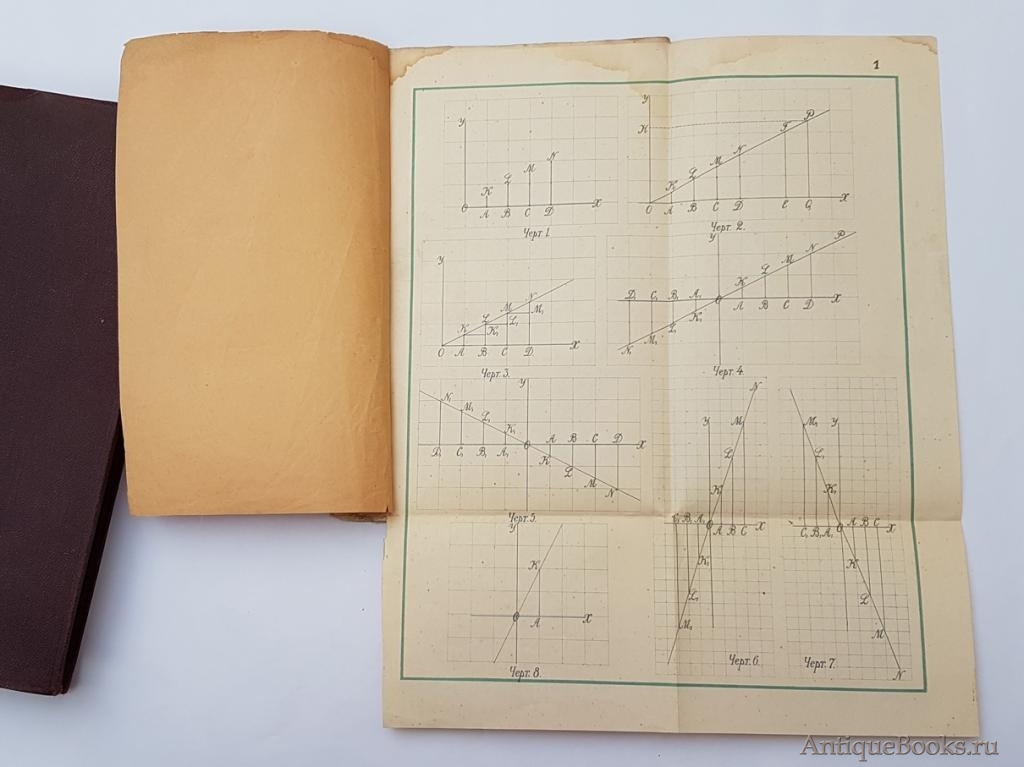 1
У
К L M N
О A B C D X
Черт. 1.
У
H
K L M N F P
О A B C D E G X
Черт. 2.
У
K L M N
K₁ L₁ M₁
О A B C D X
Черт. 3.
У
K L M N P
D₁ C₁ B₁ A₁ О A B C D X
K₁ L₁ M₁ N₁
Черт. 4.
У
N₁ M₁ L₁ K₁
D₁ C₁ B₁ A₁ О A B C D X
K L M N
Черт. 5.
N
У M
L
K
C₁ B₁ A₁ О A B C X
K₁
L₁
M₁
Черт. 6.
M₁ У
L₁
K₁
C₁ B₁ A₁ О A B C X
K
L
M
N
Черт. 7.
У
K
О A X
Черт. 8.
AntiqueBooks.ru